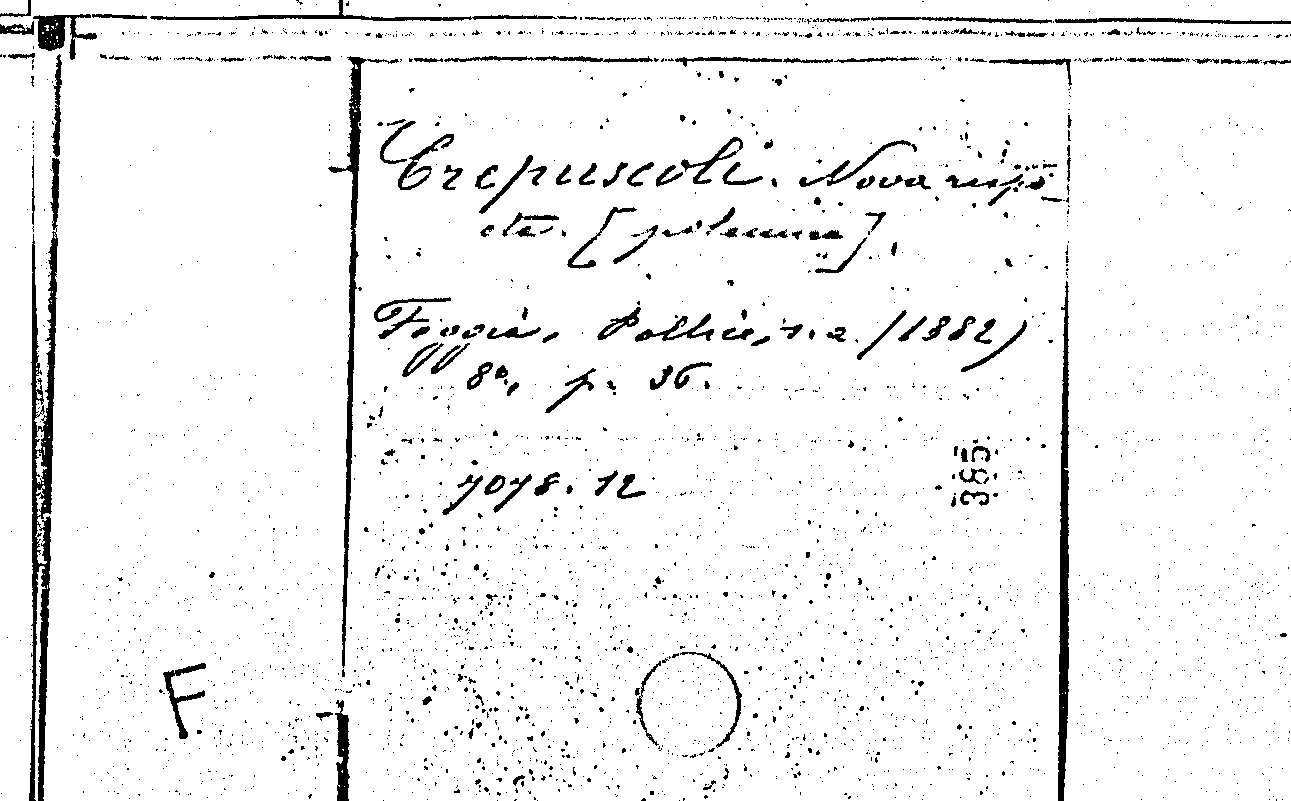 Crepuscoli. Nova rispo-
sta. [polemica].
Foggia, Pollice, s. a. (1882)
8°, p. 36.
7078. 12
385
F